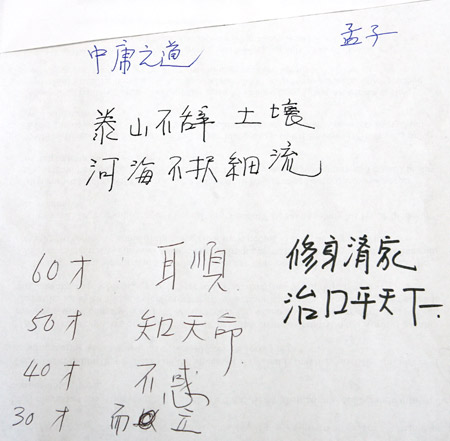 中庸之道
孟子
泰山不辞土壌
河海不択細流
修身清家
治口平天下
60才 耳順
50才 知天命
40才 不惑
30才 而立